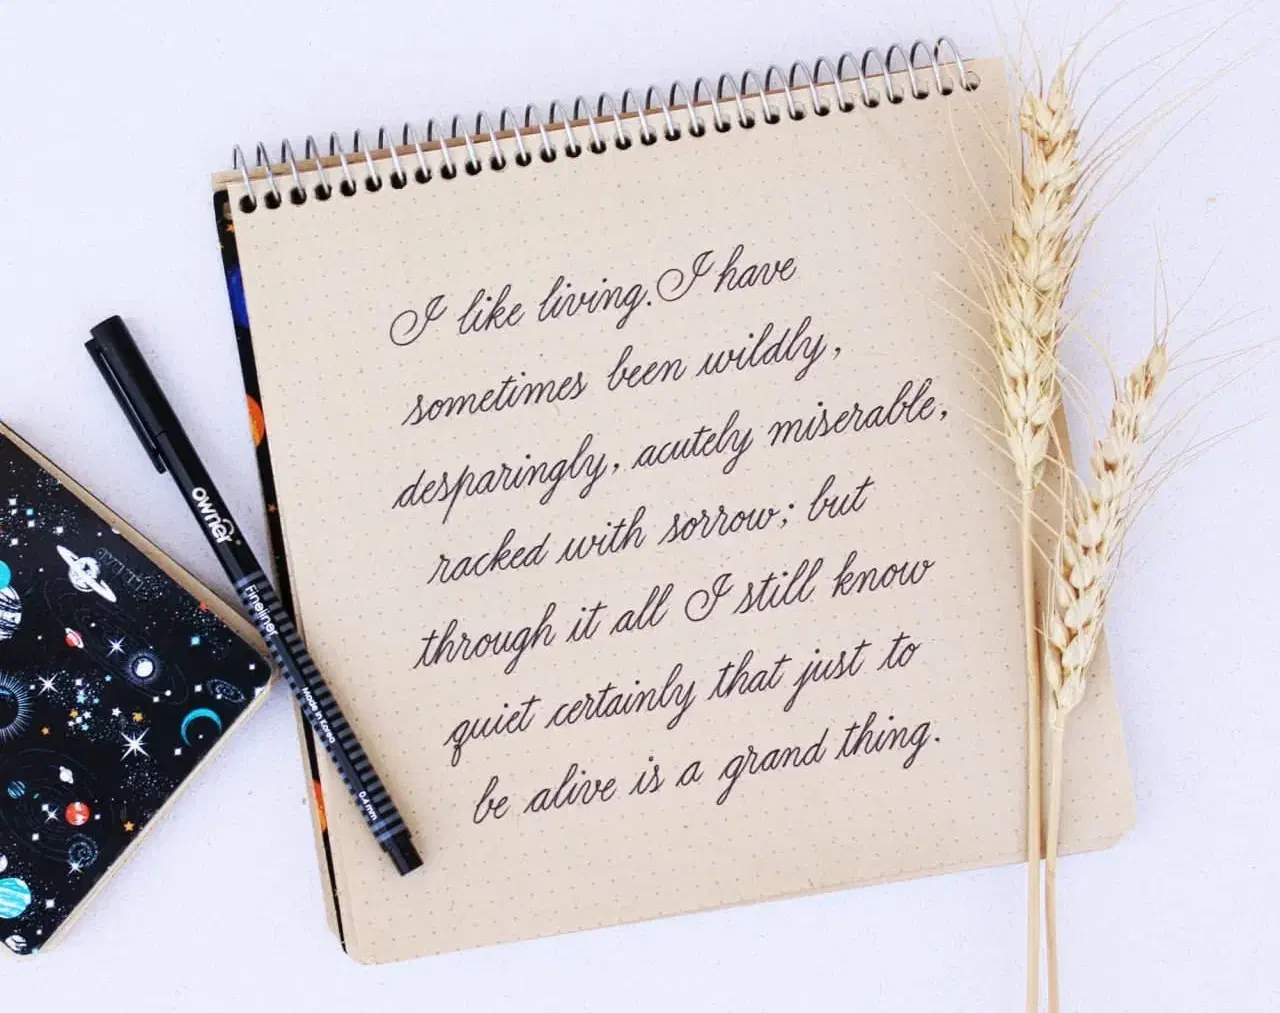 I like living. I have
sometimes been wildly,
desparingly, acutely miserable,
racked with sorrow; but
through it all I still know
quiet certainly that just to
be alive is a grand thing.
owner
Fineliner
Made in Korea
0.4 mm